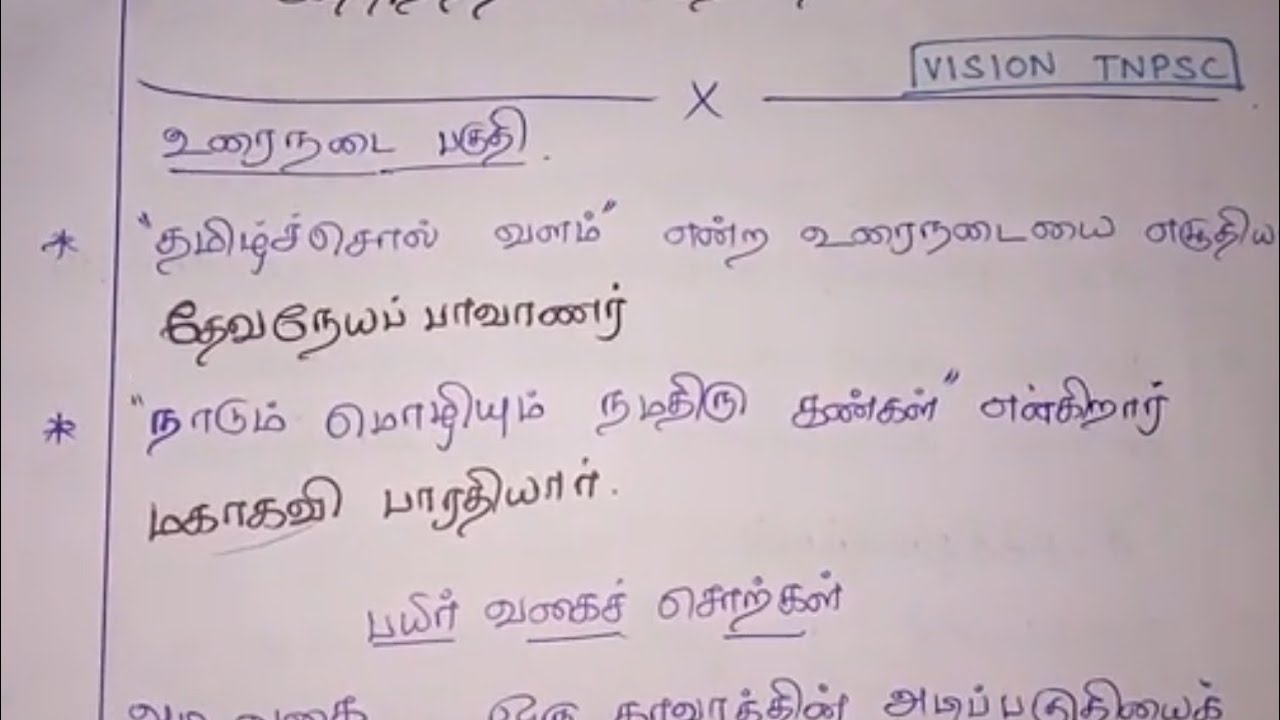 VISION TNPSC
X
உரைநடை பகுதி.
* "தமிழ்ச்சொல் வளம்" என்ற உரைநடையை எழுதிய
தேவநேயப் பாவாணர்
* "நாடும் மொழியும் நமதிரு கண்கள்" என்கிறார்
மகாகவி பாரதியார்.
பயிர் வகைச் சொற்கள்
அடி வகை ஒரு தாவரத்தின் அடிப்பகுதியைக்